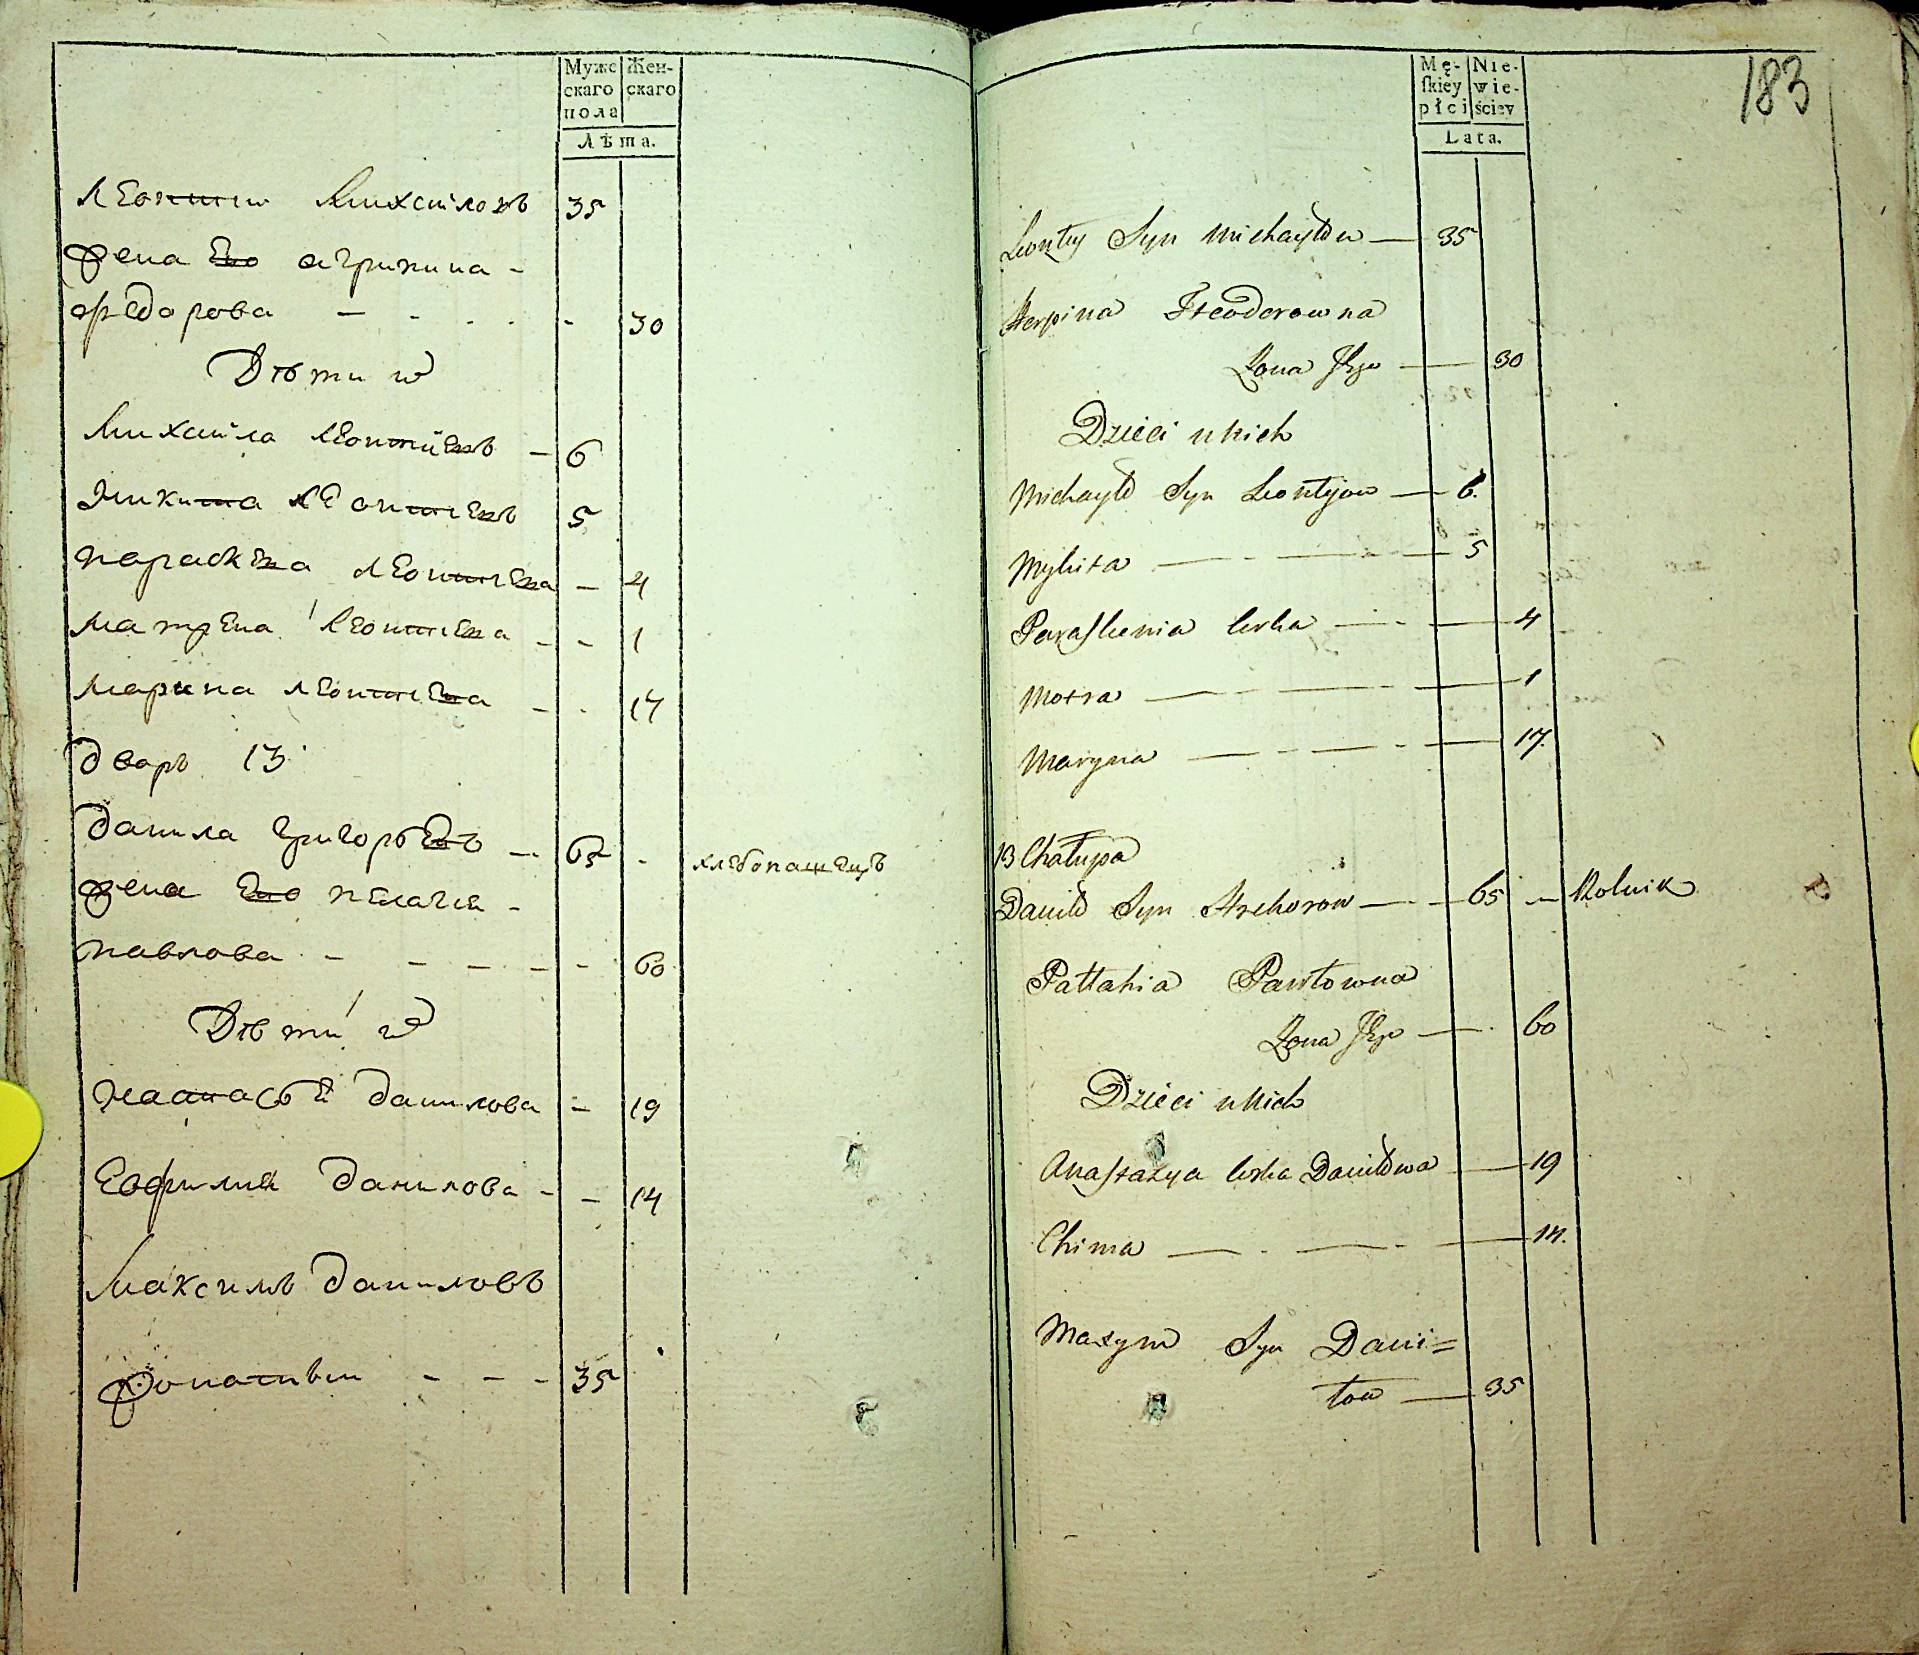 Муже Жен-
скаго скаго
пола
Лѣта.
леонтии Михаиловъ 35
жена Ево агрипина -
федорова - - 30
Дѣти их
Михаила леонтиевъ - 6
Никита леонтиевъ 5
параскева леонтиева - 4
матрена леонтиева - - 1
марина леонтиева - - 17
дворъ 13
данила григорьевъ - 65 - хлебопашецъ
жена Ево пелагия -
павлова - - - - - 60
Дѣти их
настасья данилова - 19
Евфимия данилова - - 14
Максимъ даниловъ
- - - 35
Mę- Nie-
skiey wie-
płci ściey
Lata.
183
Leonty Syn Michayłow — 35
Herpina Fteodorowna
Żona Jego — 30
Dzieci u kich
Michayło Syn Leontyow — 6.
Mykita — 5
Paraskewia corka — 4
Motra — 1
Maryna — 17.
13 Chałupa
Daniło Syn Hrehorow — 65 — Rolnik
Pałłahia Pawłowna
Żona Jego — 60
Dzieci u kich
Anastazya corka Daniłowa — 19
Chima — 14.
Maxym Syn Dani=
łow — 35